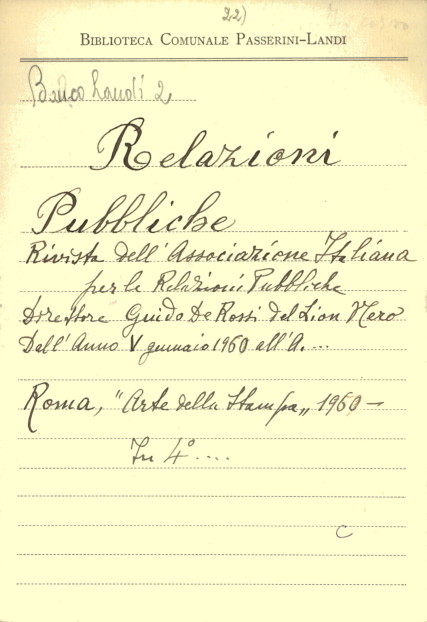 22)
BIBLIOTECA COMUNALE PASSERINI-LANDI
Banco Landi 2
Relazioni
Pubbliche
Rivista dell'Associazione Italiana
per le Relazioni Pubbliche
Direttore Guido De Rossi del Lion Nero
Dall'Anno V gennaio 1960 all'A. ...
Roma, "Arte della Stampa„ 1960 -
In 4° ....
C